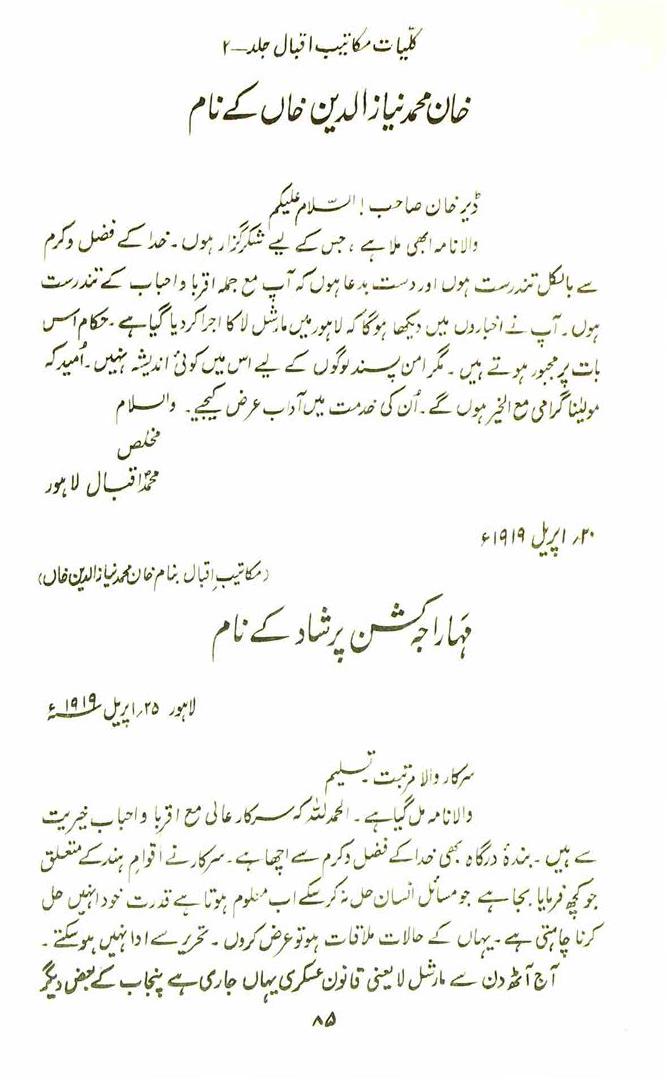 کلّیات مکاتیب اقبال جلد ــ ۲
خان محمد نیاز الدین خاں کے نام
ڈیر خان صاحب! السّلام علیکم
والا نامہ ابھی ملا ہے، جس کے لیے شکر گزار ہوں۔ خدا کے فضل و کرم
سے بالکل تندرست ہوں اور دست بدعا ہوں کہ آپ مع جملہ اقربا و احباب کے تندرست
ہوں۔ آپ نے اخباروں میں دیکھا ہوگا کہ لاہور میں مارشل لا کا اجرا کر دیا گیا ہے۔ حکام اس
بات پر مجبور ہوتے ہیں۔ مگر امن پسند لوگوں کے لیے اس میں کوئی اندیشہ نہیں۔ اُمید کہ
مولینا گرامی مع الخیر ہوں گے۔ اُن کی خدمت میں آداب عرض کیجیے۔ والسلام
مخلص
محمدؐ اقبال لاہور
۲۰؍ اپریل ۱۹۱۹ء
(مکاتیبِ اقبال بنام خان محمد نیاز الدین خاں)
مہاراجہ کشن پرشاد کے نام
لاہور ۲۵؍ اپریل ۱۹۱۹ء
سرکار والا مرتبت تسلیم
والا نامہ مل گیا ہے۔ الحمد للہ کہ سرکار عالی مع اقربا و احباب خیریت
سے ہیں۔ بندۂ درگاہ بھی خدا کے فضل و کرم سے اچھا ہے۔ سرکار نے اقوامِ ہند کے متعلق
جو کچھ فرمایا بجا ہے جو مسائل انسان حل نہ کر سکے اب معلوم ہوتا ہے قدرت خود انہیں حل
کرنا چاہتی ہے۔ یہاں کے حالات ملاقات ہو تو عرض کروں۔ تحریر سے ادا نہیں ہو سکتے۔
آج آٹھ دن سے مارشل لا یعنی قانون عسکری یہاں جاری ہے پنجاب کے بعض دیگر
۸۵